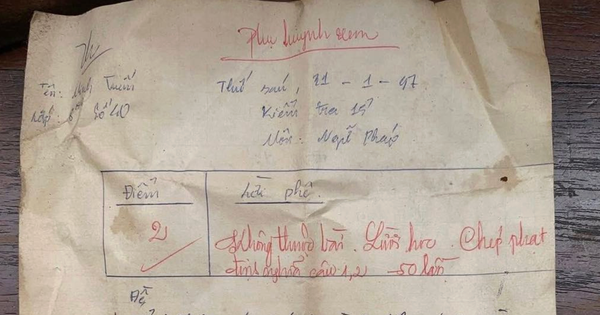 Phụ huynh xem
Tên: Anh Tuấn
Thứ sáu, 31 - 1 - 97
Lớp: Số 40
Kiểm tra 15'
Môn: Ngữ Pháp
Điểm
Lời phê
2
Không thuộc bài. Lười học. Chép phạt
định nghĩa câu 1, 2 50 lần
Đề